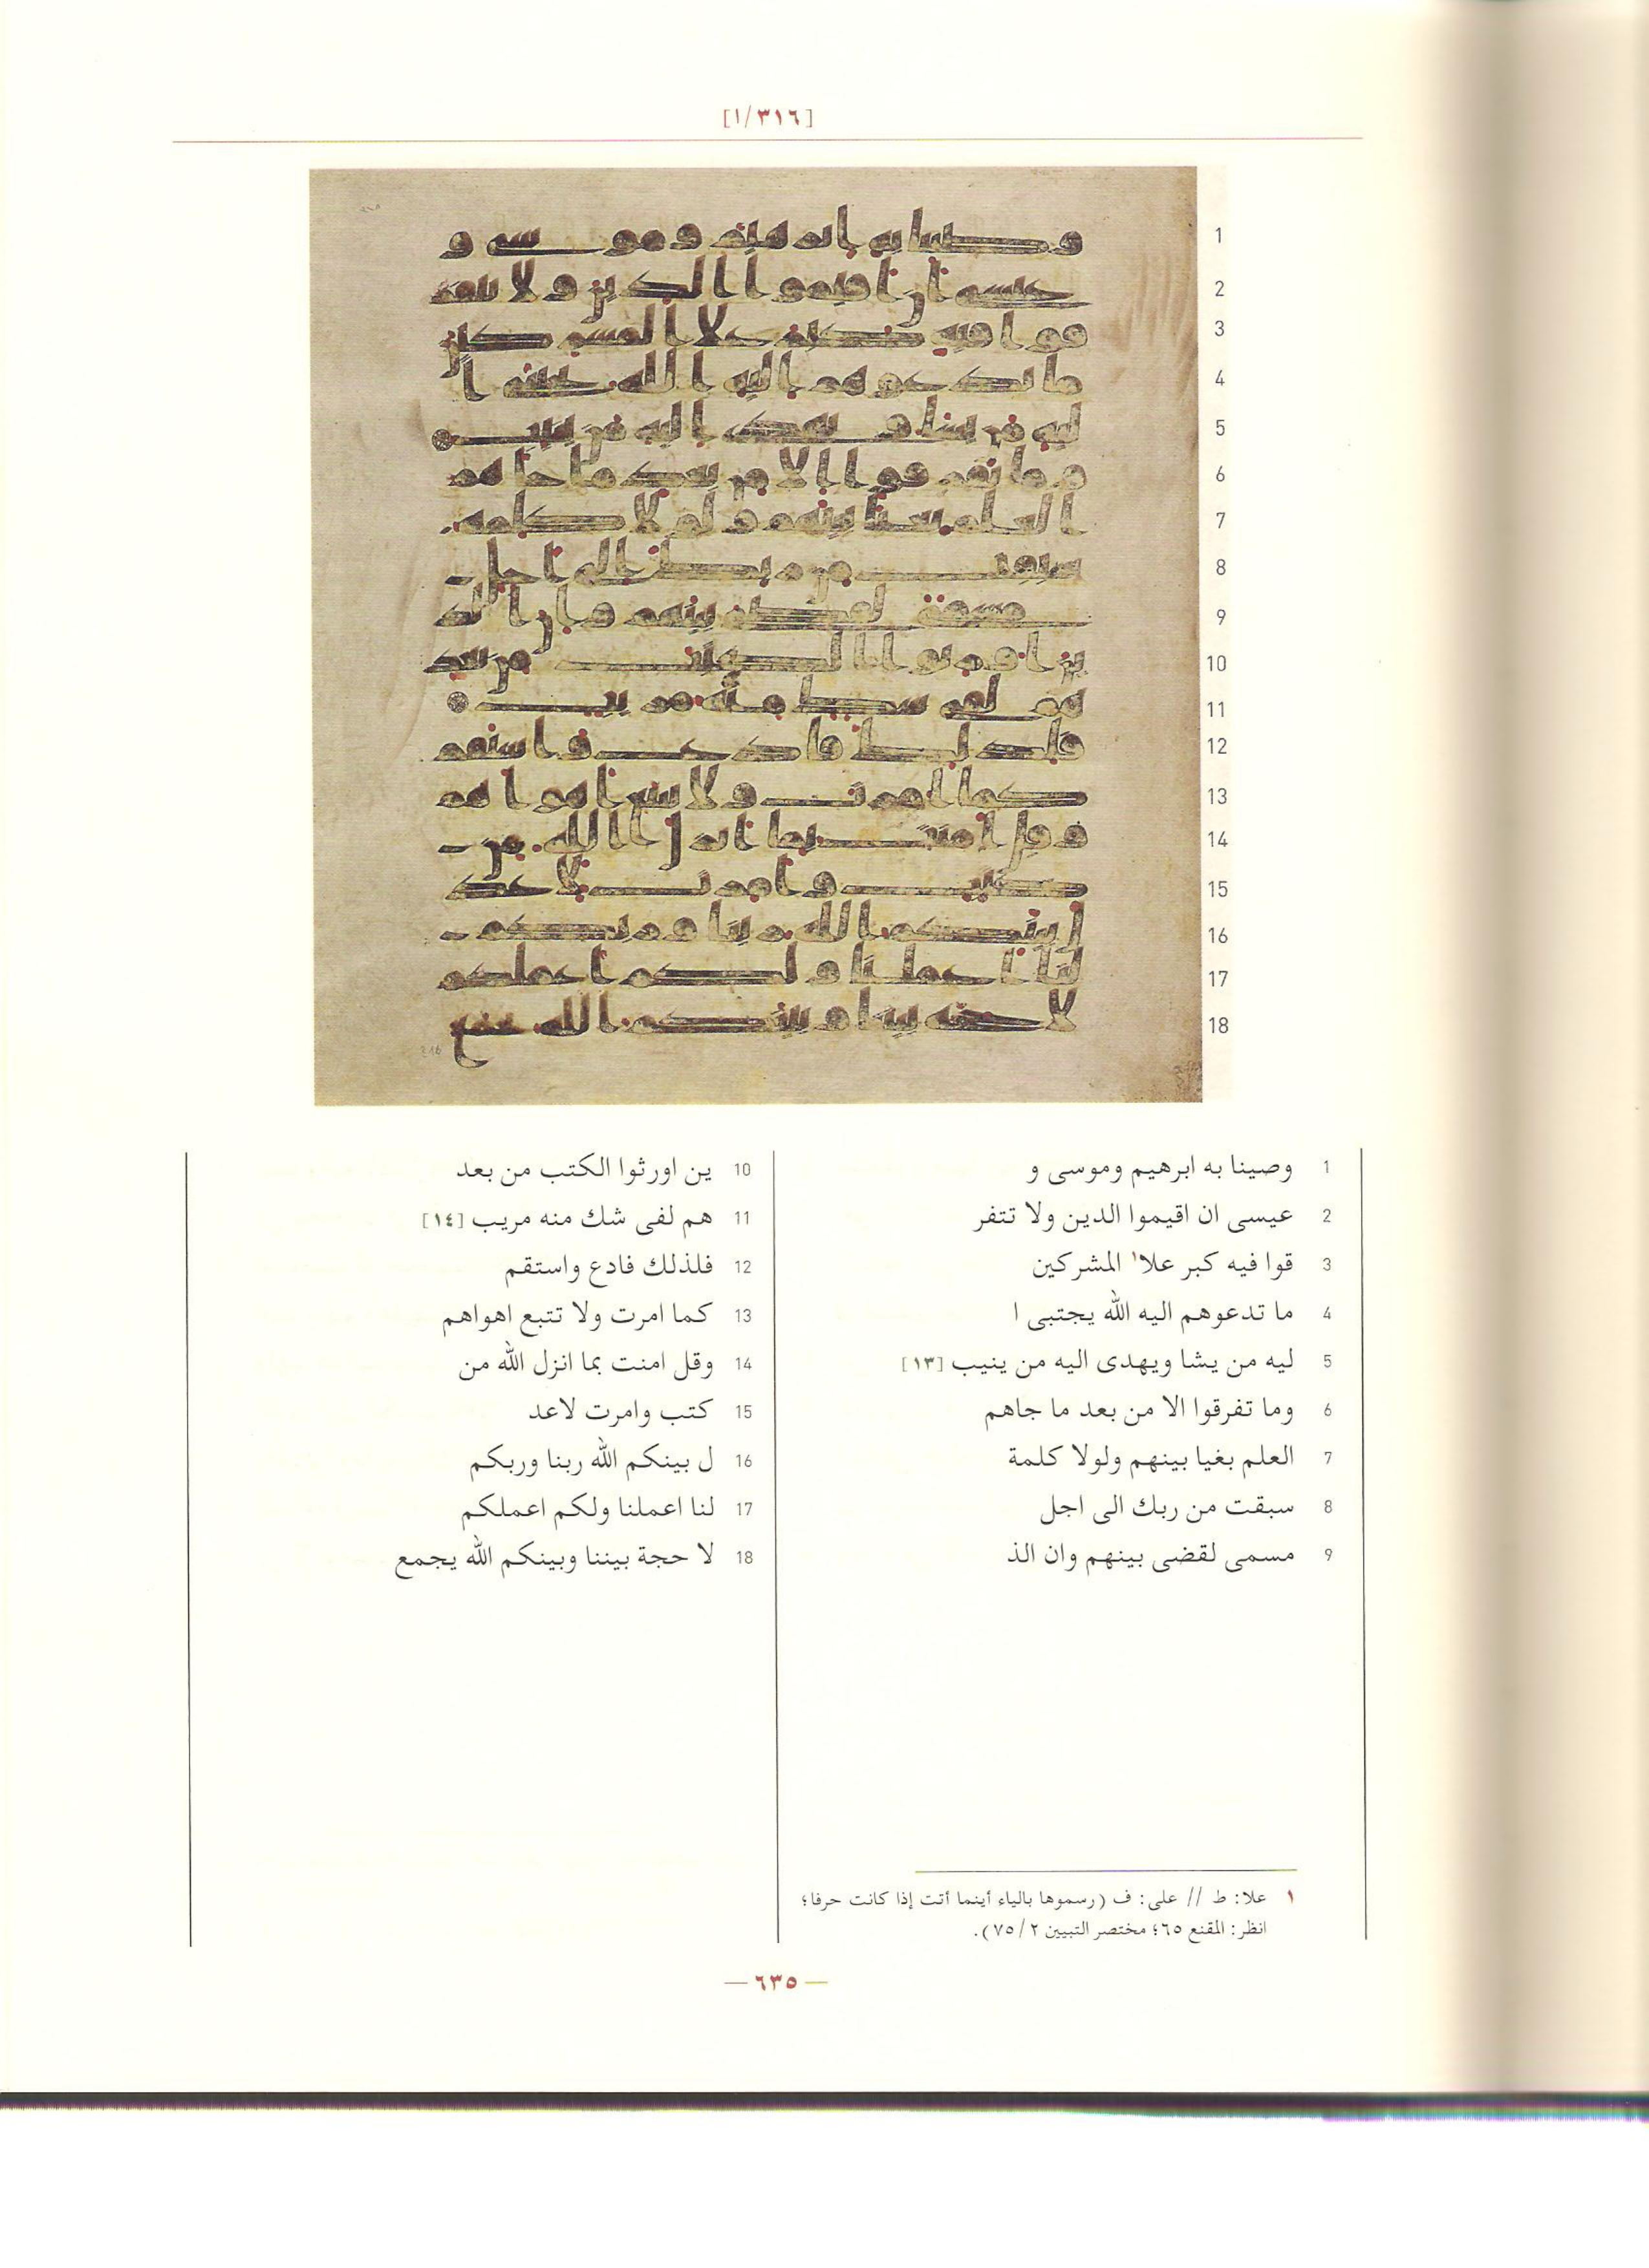 [٣١٦/١]
1 وصينا به ابرهيم وموسى و
2 عيسى ان اقيموا الدين ولا تتفر
3 قوا فيه كبر علا١ المشركين
4 ما تدعوهم اليه الله يجتبى ا
5 ليه من يشا ويهدى اليه من ينيب [١٣]
6 وما تفرقوا الا من بعد ما جاهم
7 العلم بغيا بينهم ولولا كلمة
8 سبقت من ربك الى اجل
9 مسمى لقضى بينهم وان الذ
10 ين اورثوا الكتب من بعد
11 هم لفى شك منه مريب [١٤]
12 فلذلك فادع واستقم
13 كما امرت ولا تتبع اهواهم
14 وقل امنت بما انزل الله من
15 كتب وامرت لاعد
16 ل بينكم الله ربنا وربكم
17 لنا اعملنا ولكم اعملكم
18 لا حجة بيننا وبينكم الله يجمع
١ علا: ط // على: ف (رسموها بالياء أينما أتت إذا كانت حرفا؛
انظر: المقنع ٦٥؛ مختصر التبيين ٧٥/٢).
— ٦٣٥ —